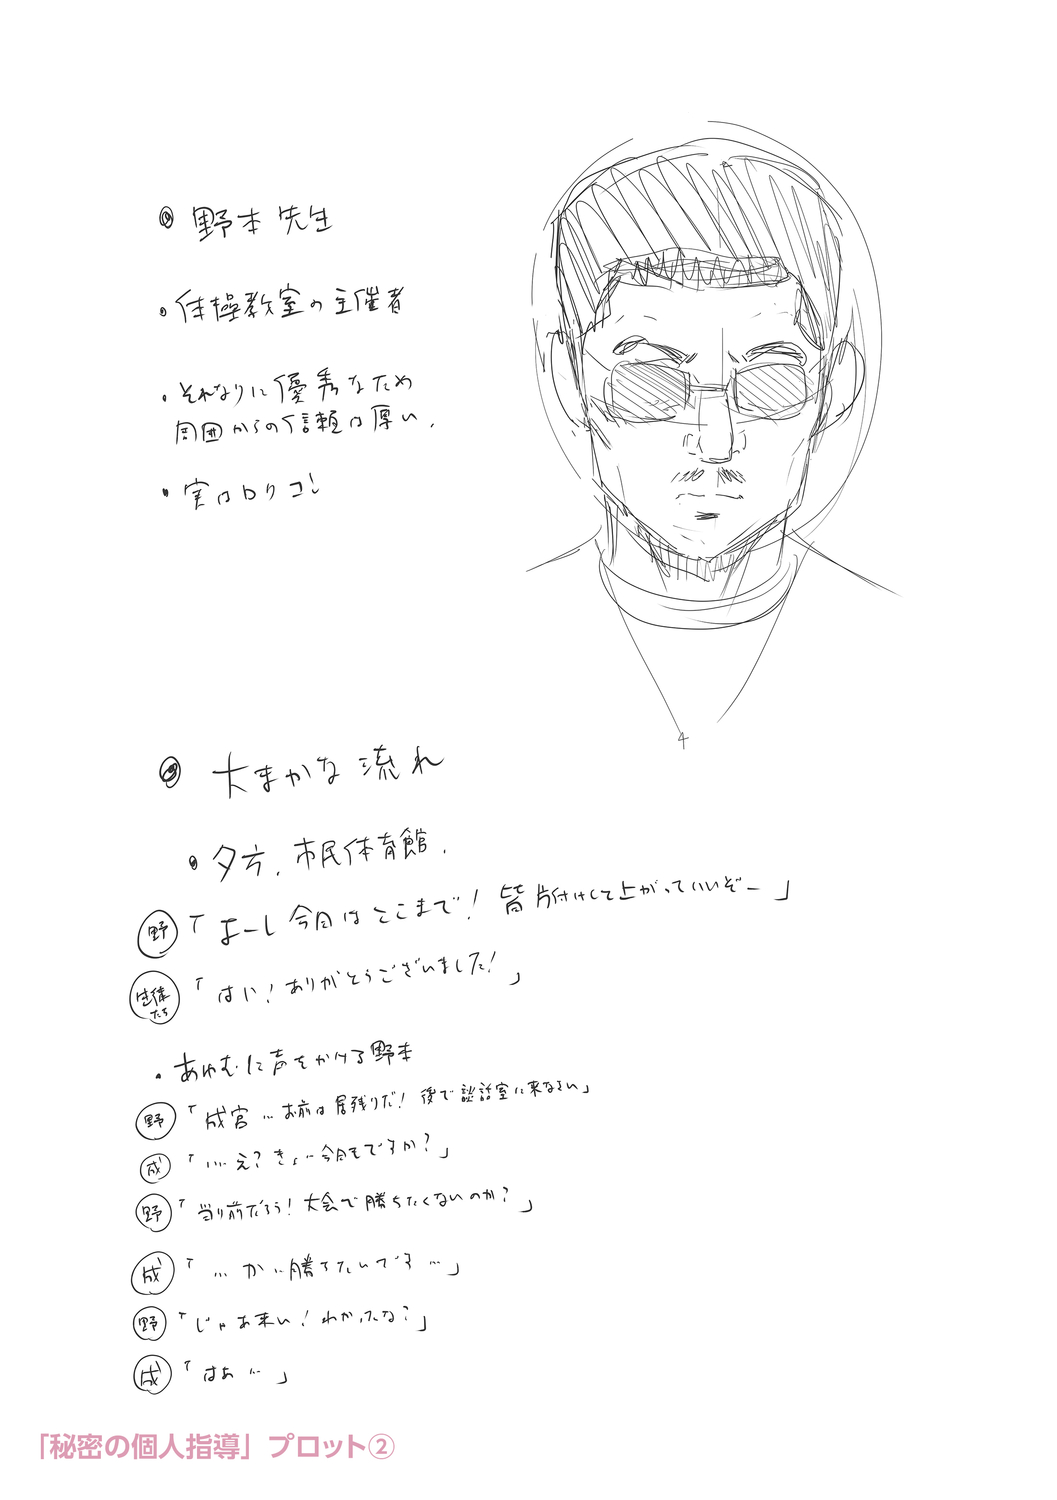 ◎ 野本先生
・体操教室の主催者
・それなりに優秀なため
周囲からの信頼は厚い.
・実はロリコン!
◎ 大まかな流れ
・夕方.市民体育館.
野「よーし今日はここまで!皆片付けして上がっていいぞー」
生徒たち「はい!ありがとうございました!」
・あゆむに声をかける野本
野「成宮…お前は居残りだ!後で談話室に来なさい」
成「…え?きょ…今日もですか?」
野「当り前だろう!大会で勝ちたくないのか?」
成「…か…勝ちたいです…」
野「じゃあ来い!わかったな?」
成「はあ…」
「秘密の個人指導」プロット②